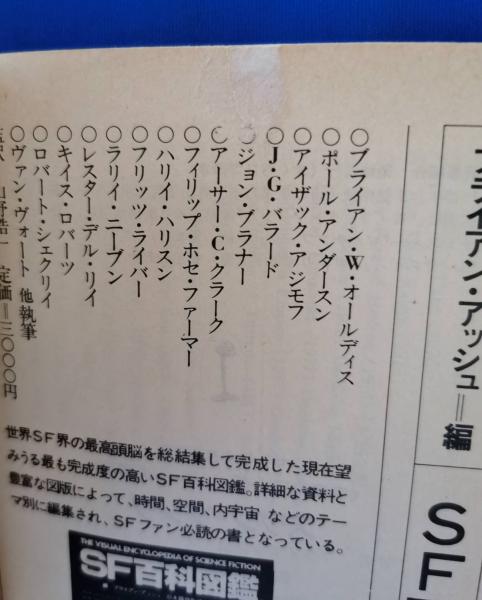 ブライアン・アッシュ＝編
SF
○ブライアン・W・オールディス
○ポール・アンダースン
○アイザック・アジモフ
○J・G・バラード
○ジョン・ブラナー
○アーサー・C・クラーク
○フィリップ・ホセ・ファーマー
○ハリイ・ハリスン
○フリッツ・ライバー
○ラリイ・ニーブン
○レスター・デル・リイ
○キイス・ロバーツ
○ロバート・シェクリイ
○ヴァン・ヴォート 他執筆
監訳 山野浩一 定価＝三〇〇〇円
世界SF界の最高頭脳を総結集して完成した現在望
みうる最も完成度の高いSF百科図鑑。詳細な資料と
豊富な図版によって、時間、空間、内宇宙 などのテー
マ別に編集され、SFファン必読の書となっている。
THE VISUAL ENCYCLOPEDIA OF SCIENCE FICTION
SF百科図鑑